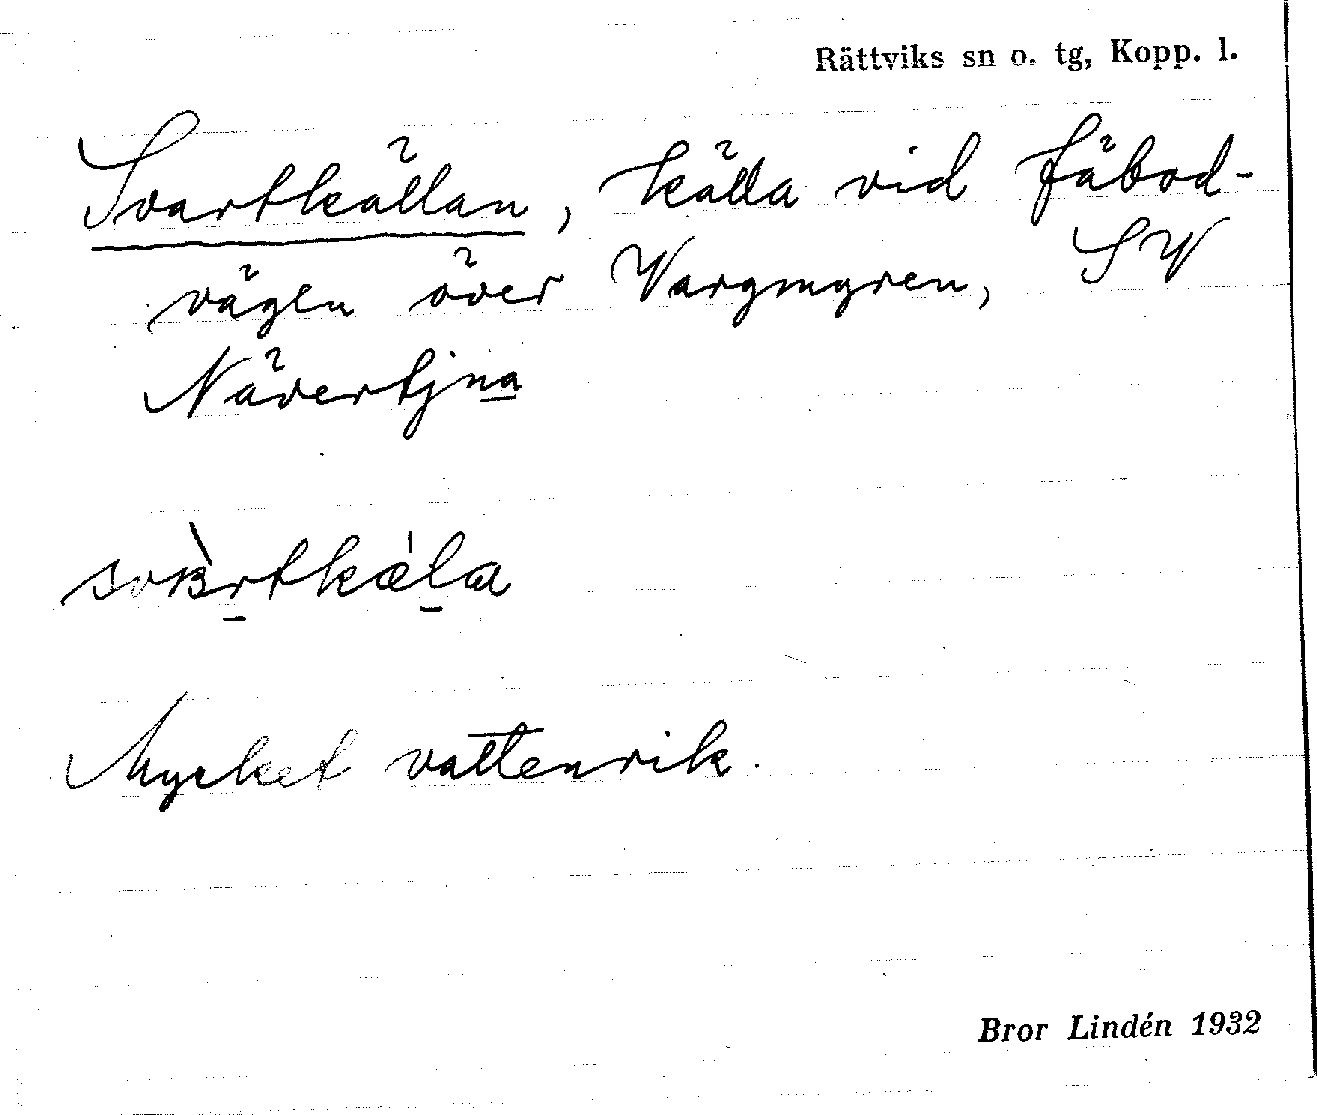 Rättviks sn o. tg, Kopp. l.
Svartkällan, källa vid fäbod-
vägen över Vargmyren, SV
Nävertjna
Mycket vattenrik.
Bror Lindén 1932